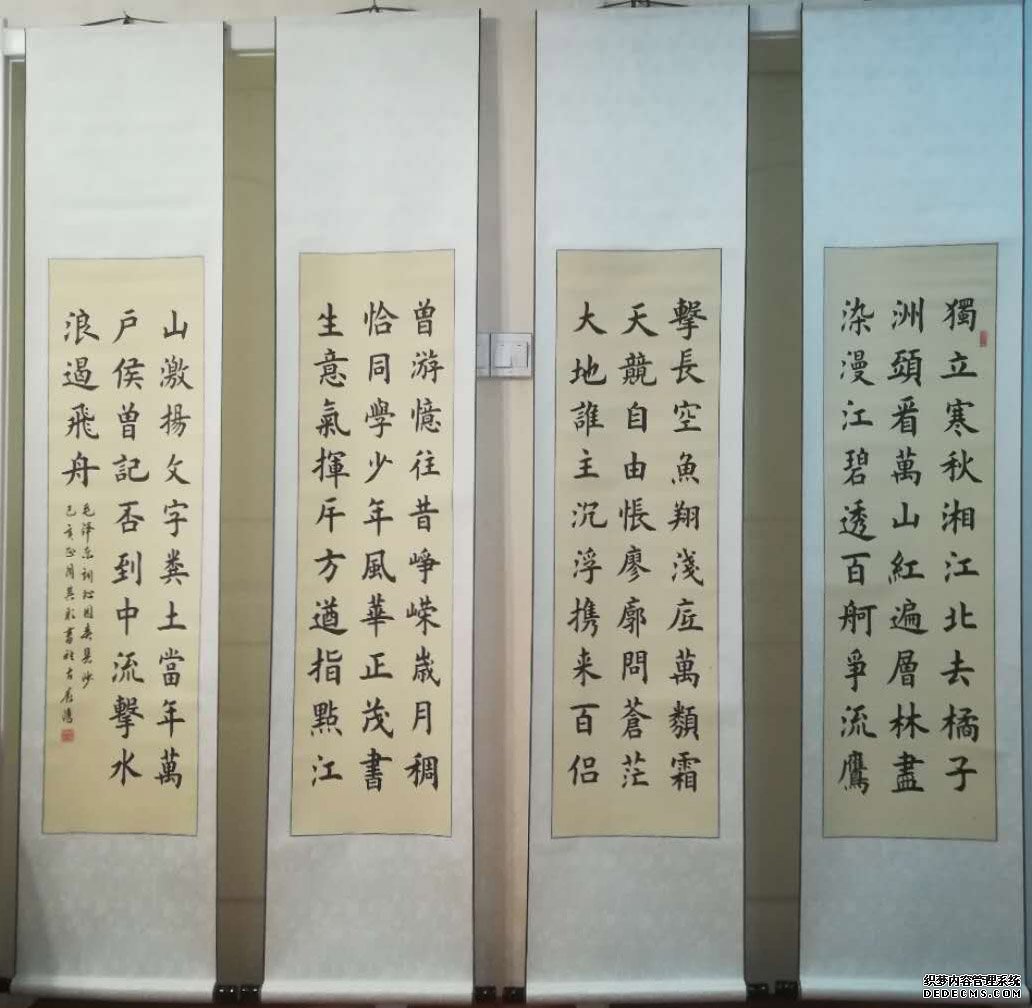 獨立寒秋湘江北去橘子
洲頭看萬山紅遍層林盡
染漫江碧透百舸爭流鷹
擊長空魚翔淺底萬類霜
天競自由悵廖廓問蒼茫
大地誰主沉浮攜来百侣
曾游憶往昔崢嶸歲月稠
恰同學少年風華正茂書
生意氣揮斥方遒指點江
山激揚文字糞土當年萬
户侯曾記否到中流擊水
浪遏飛舟
毛泽东词沁园春長沙
己亥
织梦内容管理系统
DEDECMS.COM